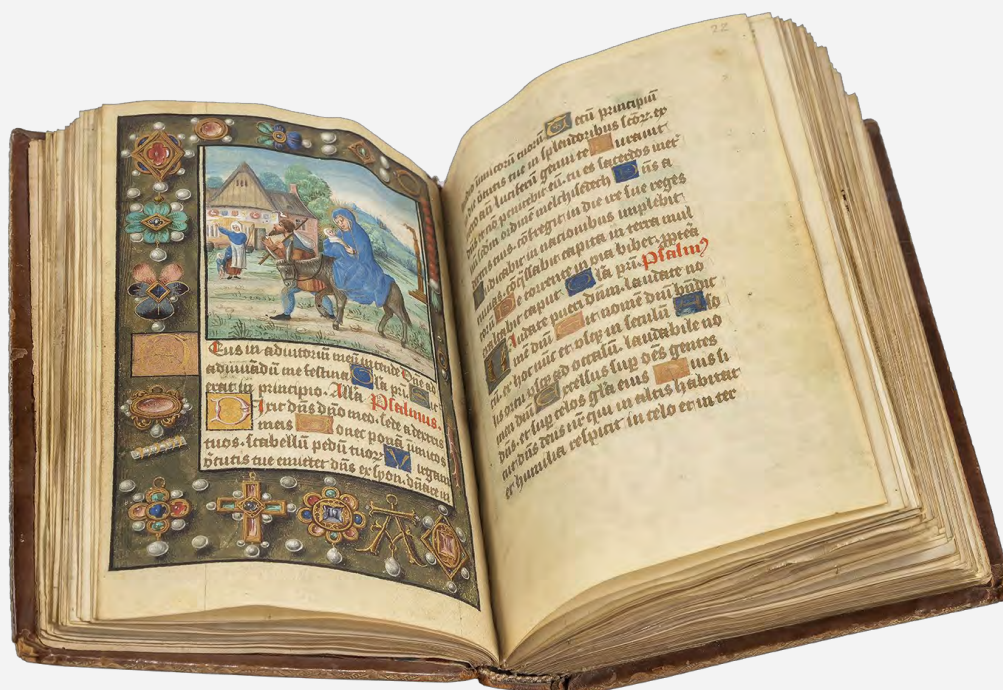 Eus in adiutoriū meū intende Dn̄e ad
adiuuādū me festina Gl̄a pr̄i Sicut
erat in principio. Alla Psalmus.
Dixit dn̄s dn̄o meo. sede a dextris
meis Donec ponā inimicos
tuos. scabellū pedū tuorꝫ Virgam
v̄tutis tue emittet dn̄s ex syon. dn̄are in
22
dio inimicorū tuorū Tecū principiū
die v̄tutis tue in splendoribus scōr. ex
luciferū genui te Iurauit
dn̄s et nō penitebit eū. tu es sacerdos in eter
scdm̄ ordinē melchisedech Dn̄s a
dextris tuis. cōfregit in die ire sue reges
Iudicabit in nacionibus implebit
ruinas. cōq̄ssabit capita in terra mul
torū De torrente in via bibet. ꝓpterea
exaltabit caput Gl̄a pr̄i. Psalmꝰ
Laudate pueri dn̄m. laudate no
mē dn̄i Sit nomē dn̄i bn̄dic
tū. ex hoc nūc et vsqꝫ in seculū A so
lis ortu vsqꝫ ad occasū. laudabile no
men dn̄i Excelsus sup̄ oēs gentes
dn̄s. et sup̄ celos gl̄a eius Quis si
cut dn̄s deus nr̄ qui in altis habitat
et humilia respicit in celo et in ter